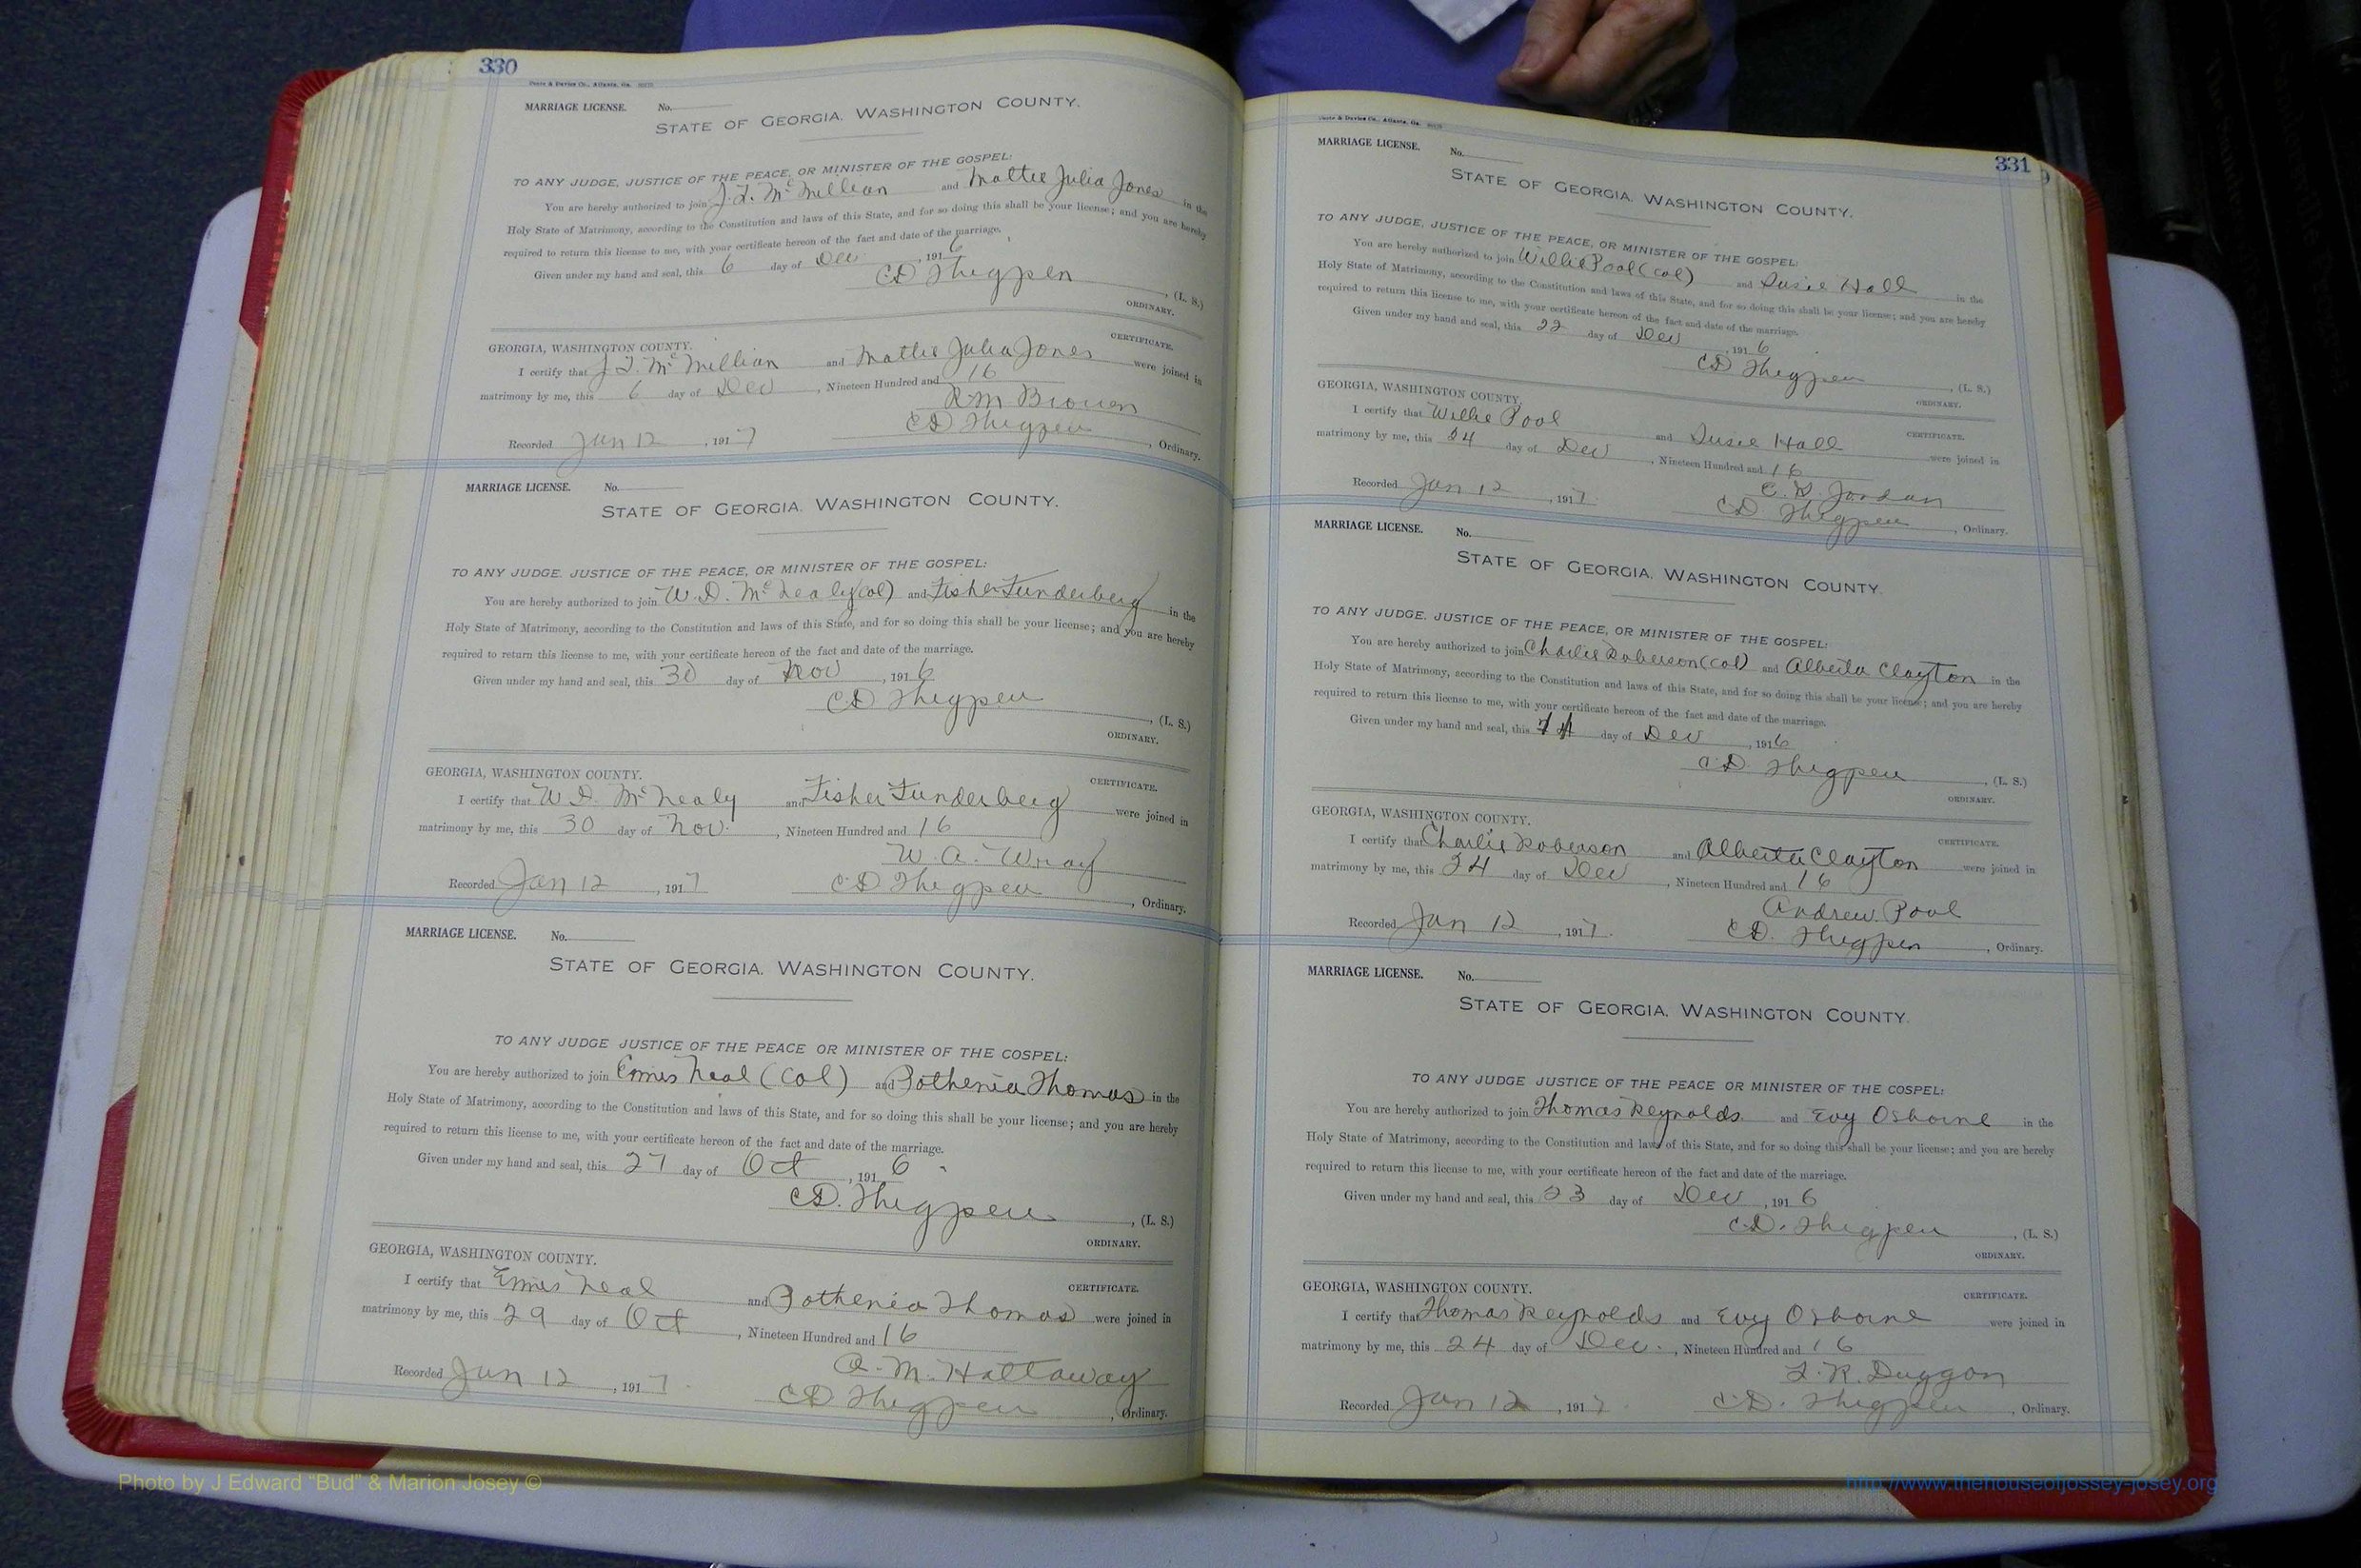 330
Foote & Davies Co., Atlanta, Ga.
MARRIAGE LICENSE. No.
STATE OF GEORGIA, WASHINGTON COUNTY.
TO ANY JUDGE, JUSTICE OF THE PEACE, OR MINISTER OF THE GOSPEL:
You are hereby authorized to join J. T. McMillian and Mattie Julia Jones in the
Holy State of Matrimony, according to the Constitution and laws of this State, and for so doing this shall be your license; and you are hereby
required to return this license to me, with your certificate hereon of the fact and date of the marriage.
Given under my hand and seal, this 6 day of Dec, 1916
CD Thigpen, (L. S.)
ORDINARY.
GEORGIA, WASHINGTON COUNTY. CERTIFICATE.
I certify that J. T. McMillian and Mattie Julia Jones were joined in
matrimony by me, this 6 day of Dec, Nineteen Hundred and 16
R M Brown
Recorded Jan 12, 1917 CD Thigpen, Ordinary.
MARRIAGE LICENSE. No.
STATE OF GEORGIA, WASHINGTON COUNTY.
TO ANY JUDGE, JUSTICE OF THE PEACE, OR MINISTER OF THE GOSPEL:
You are hereby authorized to join W. D. McNealy (col) and Fisher Funderberg in the
Holy State of Matrimony, according to the Constitution and laws of this State, and for so doing this shall be your license; and you are hereby
required to return this license to me, with your certificate hereon of the fact and date of the marriage.
Given under my hand and seal, this 30 day of Nov, 1916
CD Thigpen, (L. S.)
ORDINARY.
GEORGIA, WASHINGTON COUNTY. CERTIFICATE.
I certify that W. D. McNealy and Fisher Funderberg were joined in
matrimony by me, this 30 day of Nov., Nineteen Hundred and 16
W. A. Wray
Recorded Jan 12, 1917 CD Thigpen, Ordinary.
MARRIAGE LICENSE. No.
STATE OF GEORGIA, WASHINGTON COUNTY.
TO ANY JUDGE JUSTICE OF THE PEACE OR MINISTER OF THE COSPEL:
You are hereby authorized to join Ennis Neal (Col) and Pothenia Thomas in the
Holy State of Matrimony, according to the Constitution and laws of this State, and for so doing this shall be your license; and you are hereby
required to return this license to me, with your certificate hereon of the fact and date of the marriage.
Given under my hand and seal, this 27 day of Oct, 1916
CD. Thigpen, (L. S.)
ORDINARY.
GEORGIA, WASHINGTON COUNTY. CERTIFICATE.
I certify that Ennis Neal and Pothenia Thomas were joined in
matrimony by me, this 29 day of Oct, Nineteen Hundred and 16
A. M. Hattaway
Recorded Jan 12, 1917 CD Thigpen, Ordinary.
331
Foote & Davies Co., Atlanta, Ga.
MARRIAGE LICENSE. No.
STATE OF GEORGIA, WASHINGTON COUNTY.
TO ANY JUDGE, JUSTICE OF THE PEACE, OR MINISTER OF THE GOSPEL:
You are hereby authorized to join Willie Pool (col) and Susie Hall in the
Holy State of Matrimony, according to the Constitution and laws of this State, and for so doing this shall be your license; and you are hereby
required to return this license to me, with your certificate hereon of the fact and date of the marriage.
Given under my hand and seal, this 22 day of Dec, 1916
CD Thigpen, (L. S.)
ORDINARY.
GEORGIA, WASHINGTON COUNTY. CERTIFICATE.
I certify that Willie Pool and Susie Hall were joined in
matrimony by me, this 24 day of Dec, Nineteen Hundred and 16
Jordan
Recorded Jan 12, 1917. CD Thigpen, Ordinary.
MARRIAGE LICENSE. No.
STATE OF GEORGIA, WASHINGTON COUNTY
TO ANY JUDGE, JUSTICE OF THE PEACE, OR MINISTER OF THE GOSPEL:
You are hereby authorized to join Charlie Roberson (Col) and Alberta Clayton in the
Holy State of Matrimony, according to the Constitution and laws of this State, and for so doing this shall be your license; and you are hereby
required to return this license to me, with your certificate hereon of the fact and date of the marriage.
Given under my hand and seal, this day of Dec, 1916
C.D. Thigpen, (L. S.)
ORDINARY.
GEORGIA, WASHINGTON COUNTY. CERTIFICATE.
I certify that Charlie Roberson and Alberta Clayton were joined in
matrimony by me, this 24 day of Dec, Nineteen Hundred and 16
Andrew Pool
Recorded Jan 12, 1917. CD. Thigpen, Ordinary.
MARRIAGE LICENSE. No.
STATE OF GEORGIA, WASHINGTON COUNTY.
TO ANY JUDGE JUSTICE OF THE PEACE OR MINISTER OF THE COSPEL:
You are hereby authorized to join Thomas Reynolds. and Evy Osborne in the
Holy State of Matrimony, according to the Constitution and laws of this State, and for so doing this shall be your license; and you are hereby
required to return this license to me, with your certificate hereon of the fact and date of the marriage.
Given under my hand and seal, this 23 day of Dec, 1916
C.D. Thigpen, (L. S.)
ORDINARY.
GEORGIA, WASHINGTON COUNTY. CERTIFICATE.
I certify that Thomas Reynolds and Evy Osborne were joined in
matrimony by me, this 24 day of Dec., Nineteen Hundred and 16
L. R. Duggan
Recorded Jan 12, 1917 C.D. Thigpen, Ordinary.
Photo by J Edward "Bud" & Marion Josey ©
http://www.thehouseofjossey-josey.org